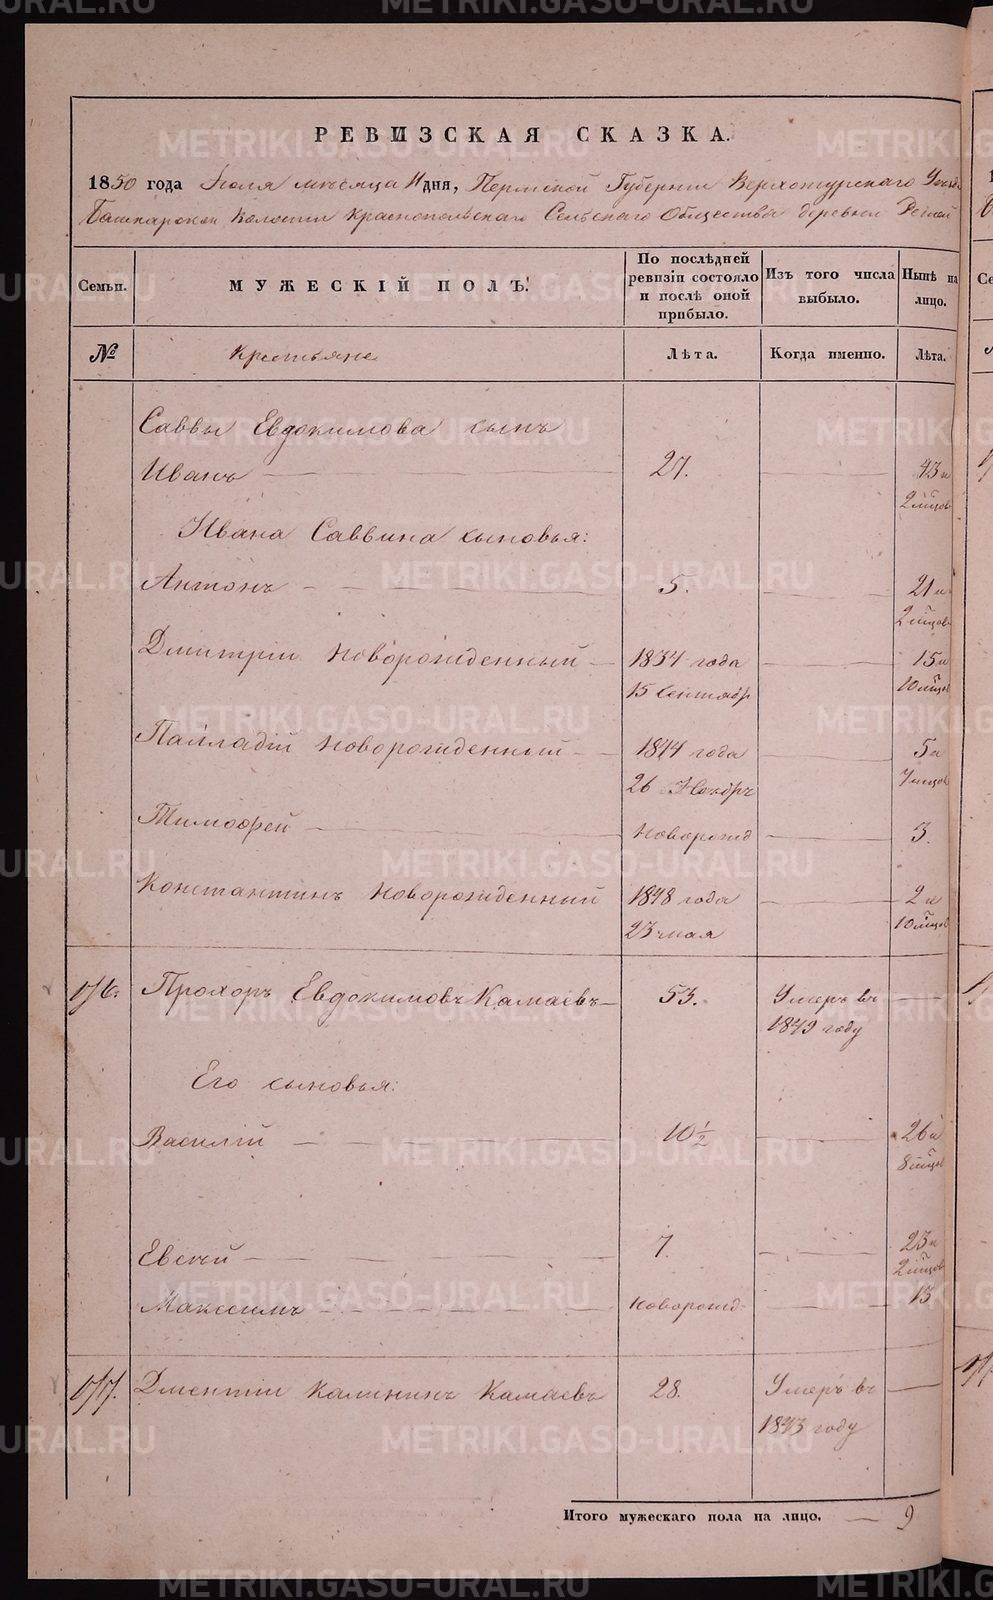 РЕВИЗСКАЯ СКАЗКА.
1850 года Июля месяца 11 дня, Пермской Губернии Верхотурского Уезда
Башкарской Волости Краснопольского Сельского Общества деревни
Семьи.
МУЖЕСКІЙ ПОЛЪ.
По послѣдней ревизіи состояло и послѣ оной прибыло.
Изъ того числа выбыло.
Нынѣ на лицо.
№
Крестьяне
Лѣта.
Когда именно.
Лѣта.
Саввы Евдокимова сынъ
Иванъ 27. 43 и
2 мѣцов
Ивана Саввина сыновья:
Антонъ 5. 21 и
2 мѣцов
Дмитрій Новорожденный 1834 года 15 и
15 Сентябр 10 мѣцов
Палладій Новорожденный 1844 года 5 и
26 Ноябръ 7 мѣцов
Тимофей Новорожд 3.
Константинъ Новорожденный 1848 года 2 и
23 мая 10 мѣцов
Прохоръ Евдокимовъ Камаевъ 53. Умеръ въ
1849 году
Его сыновья:
Василій 10 1/2 26 и
8 мѣцов
Евсей 7. 23 и
2 мѣцов
Максимъ Новорожд. 13
Дментій Калининъ Камаевъ 28. Умеръ въ
1843 году
Итого мужескаго пола на лицо. 9
METRIKI.GASO-URAL.RU